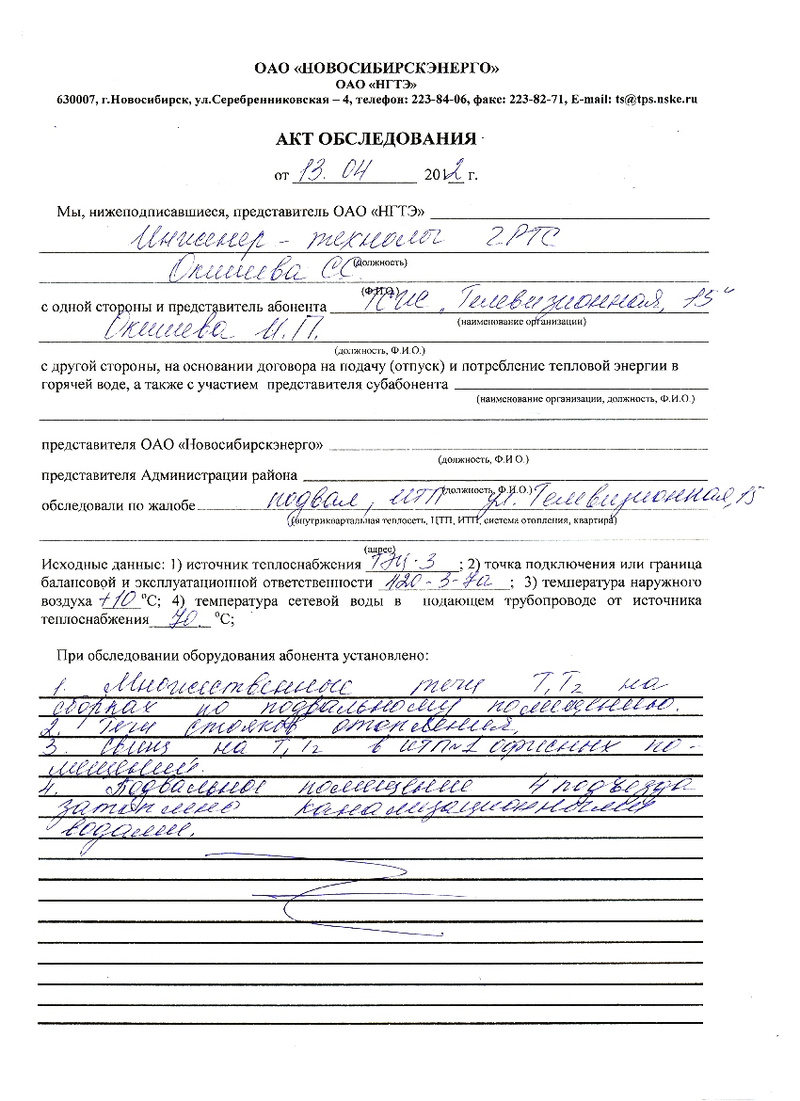 ОАО «НОВОСИБИРСКЭНЕРГО»
ОАО «НГТЭ»
630007, г.Новосибирск, ул.Серебренниковская – 4, телефон: 223-84-06, факс: 223-82-71, E-mail: ts@tps.nske.ru
АКТ ОБСЛЕДОВАНИЯ
от 13. 04 2012 г.
Мы, нижеподписавшиеся, представитель ОАО «НГТЭ»
Инженер - технолог 2РТС
(должность)
Окишева С.С.
(Ф.И.О.)
с одной стороны и представитель абонента ТСЖ „Телевизионная, 15"
(наименование организации)
Окишева И.П.
(должность, Ф.И.О.)
с другой стороны, на основании договора на подачу (отпуск) и потребление тепловой энергии в
горячей воде, а также с участием представителя субабонента
(наименование организации, должность, Ф.И.О.)
представителя ОАО «Новосибирскэнерго»
(должность, Ф.И.О.)
представителя Администрации района
(должность, Ф.И.О.)
обследовали по жалобе подвал, ИТП ул. Телевизионная, 15
(внутриквартальная теплосеть, ЦТП, ИТП, система отопления, квартира)
(адрес)
Исходные данные: 1) источник теплоснабжения ТЭЦ-3 ; 2) точка подключения или граница
балансовой и эксплуатационной ответственности 420-3-7а ; 3) температура наружного
воздуха +10 °С; 4) температура сетевой воды в подающем трубопроводе от источника
теплоснабжения 70 °С;
При обследовании оборудования абонента установлено:
1. Множественные течи Т1Т2 на
сборках по подвальному помещению.
2. Течи стояков отопления.
3. Свищ на Т1Т2 в ИТП№1 офисных по-
мещений.
4. Подвальное помещение 4 подъезда
затоплено канализационными
водами.